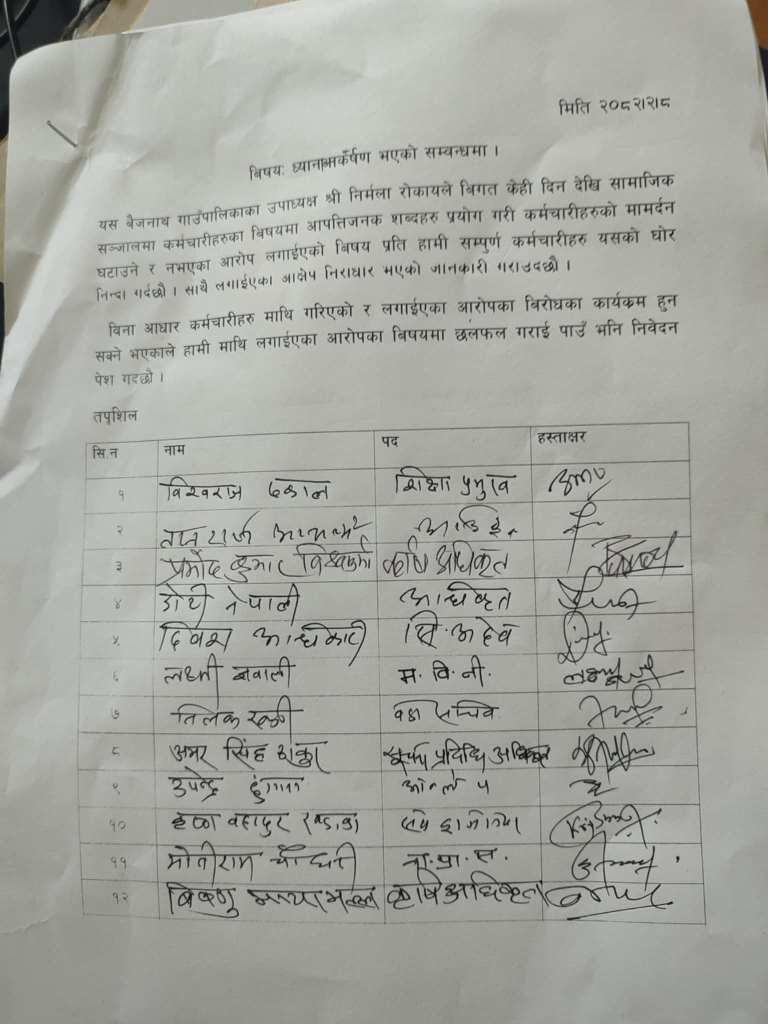 मिति २०८२।२।८
बिषयः ध्यानाकर्षण भएको सम्वन्धमा ।
यस बैजनाथ गाउँपालिकाका उपाध्यक्ष श्री निर्मला रोकायले बिगत केही दिन देखि सामाजिक
सञ्जालमा कर्मचारीहरुका बिषयमा आपत्तिजनक शब्दहरु प्रयोग गरी कर्मचारीहरुको मामर्दन
घटाउने र नभएका आरोप लगाईएको बिषय प्रति हामी सम्पुर्ण कर्मचारीहरु यसको घोर
निन्दा गर्दछौ । साथै लगाईएका आक्षेप निराधार भएको जानकारी गराउदछौ ।
विना आधार कर्मचारीहरु माथि गरिएको र लगाईएका आरोपका बिरोधका कार्यकम हुन
सक्ने भएकाले हामी माथि लगाईएका आरोपका बिषयमा छलफल गराई पाउँ भनि निवेदन
पेश गदछौ ।
तपशिल
सि.न नाम पद हस्ताक्षर
१ विश्वराज ढकाल शिक्षा प्रमुख
२
३ प्रमोद कुमार विश्वकर्मा कृषि अधिकृत
४ डोरी नेपाली अधिकृत
५ दिवस अधिकारी सि.अ हेव
६ लक्ष्मी ज्ञवाली म. वि. नी.
७ तिलक वडा सचिव
८ अमर सिंह प्रविधि अधिकृत
९ उपेन्द्र
१० वहादुर
११ मोतीराम चौधरी ना.प्रा.स.
१२ बिष्णु माया मल्ल कृषि अधिकृत